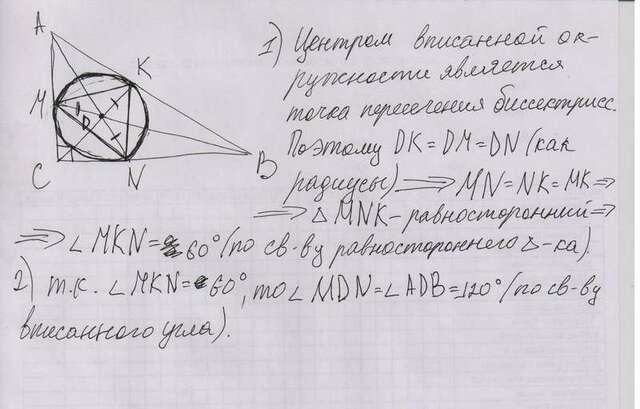 A
K
M
D
C
N
B
1) Центром вписанной ок-
ружности является
точка пересечения биссектрисс.
Поэтому DK = DM = DN (как
радиусы) ⟹ MN = NK = MK ⟹
⟹ △ MNK - равносторонний ⟹
⟹ ∠ MKN = 60° (по св-ву равностороннего △-ка).
2) т.к. ∠ MKN = 60°, то ∠ MDN = ∠ ADB = 120° (по св-ву
вписанного угла).